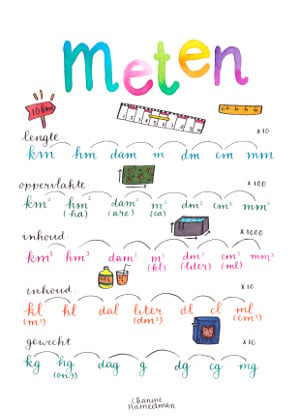 meten
10 km
lengte x10
km hm dam m dm cm mm
oppervlakte x100
km² hm² dam² m² dm² cm² mm²
(ha) (are) (ca)
inhoud x1000
km³ hm³ dam³ m³ dm³ cm³ mm³
(kl) (liter) (ml)
inhoud x10
kl hl dal liter dl cl ml
(m³) (dm³) (cm³)
gewicht x10
kg hg dag g dg cg mg
(ons)